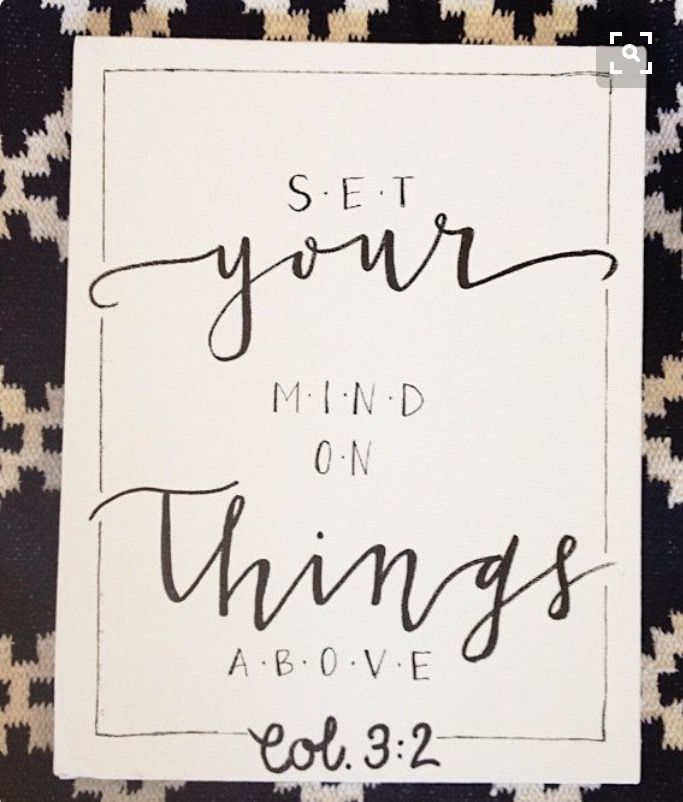 S·E·T
your
M·I·N·D
O·N
Things
A·B·O·V·E
Col. 3:2